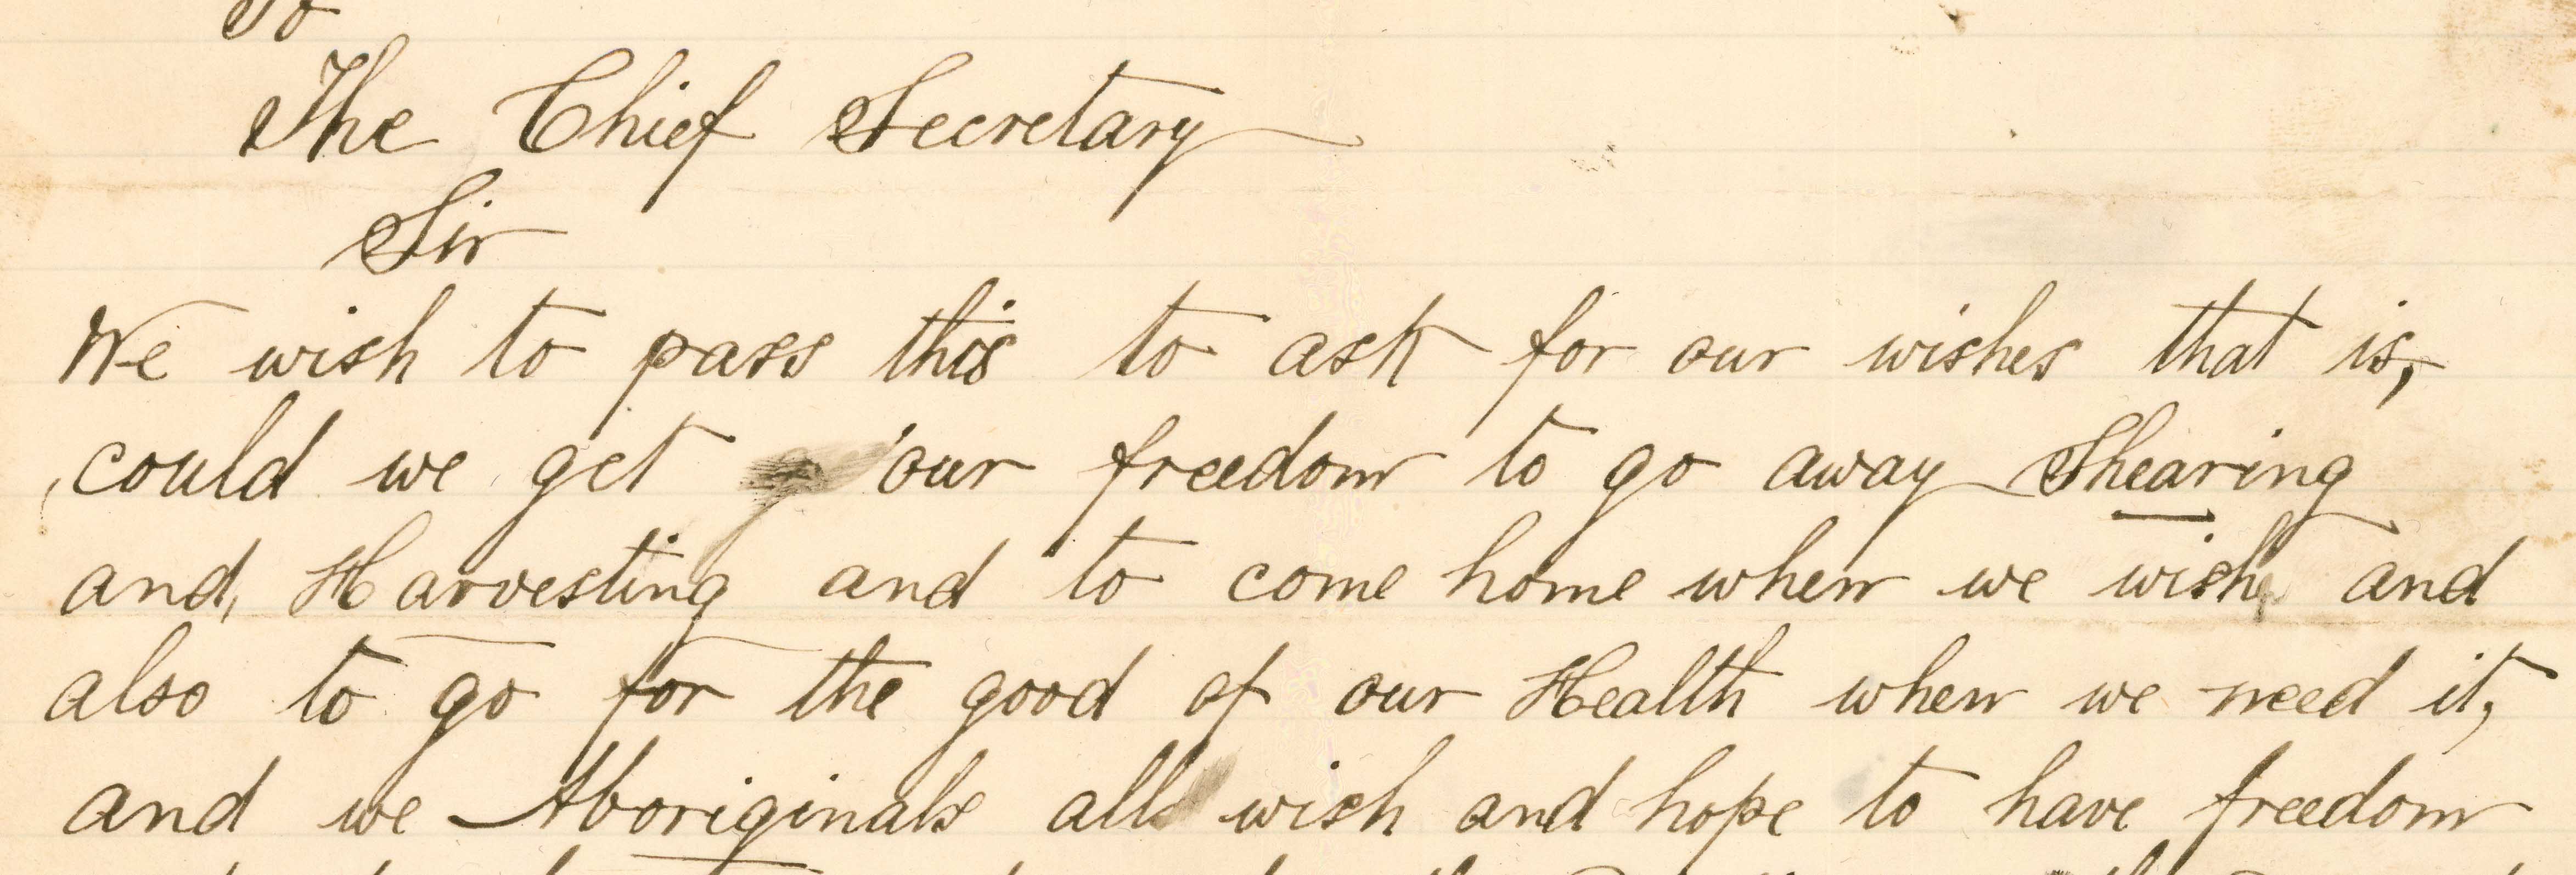 To
The Chief Secretary
Sir
We wish to pass this to ask for our wishes that is,
could we get our freedom to go away Shearing
and, Harvesting and to come home when we wish and
also to go for the good of our Health when we need it,
and we Aboriginals all wish and hope to have freedom